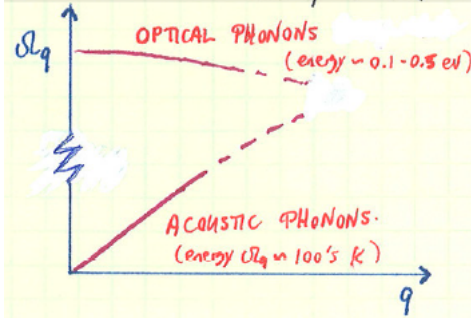 OPTICAL PHONONS
Ωq
(energy ~ 0.1-0.5 eV)
ACOUSTIC PHONONS.
(energy Ωq ~ 100's K)
q